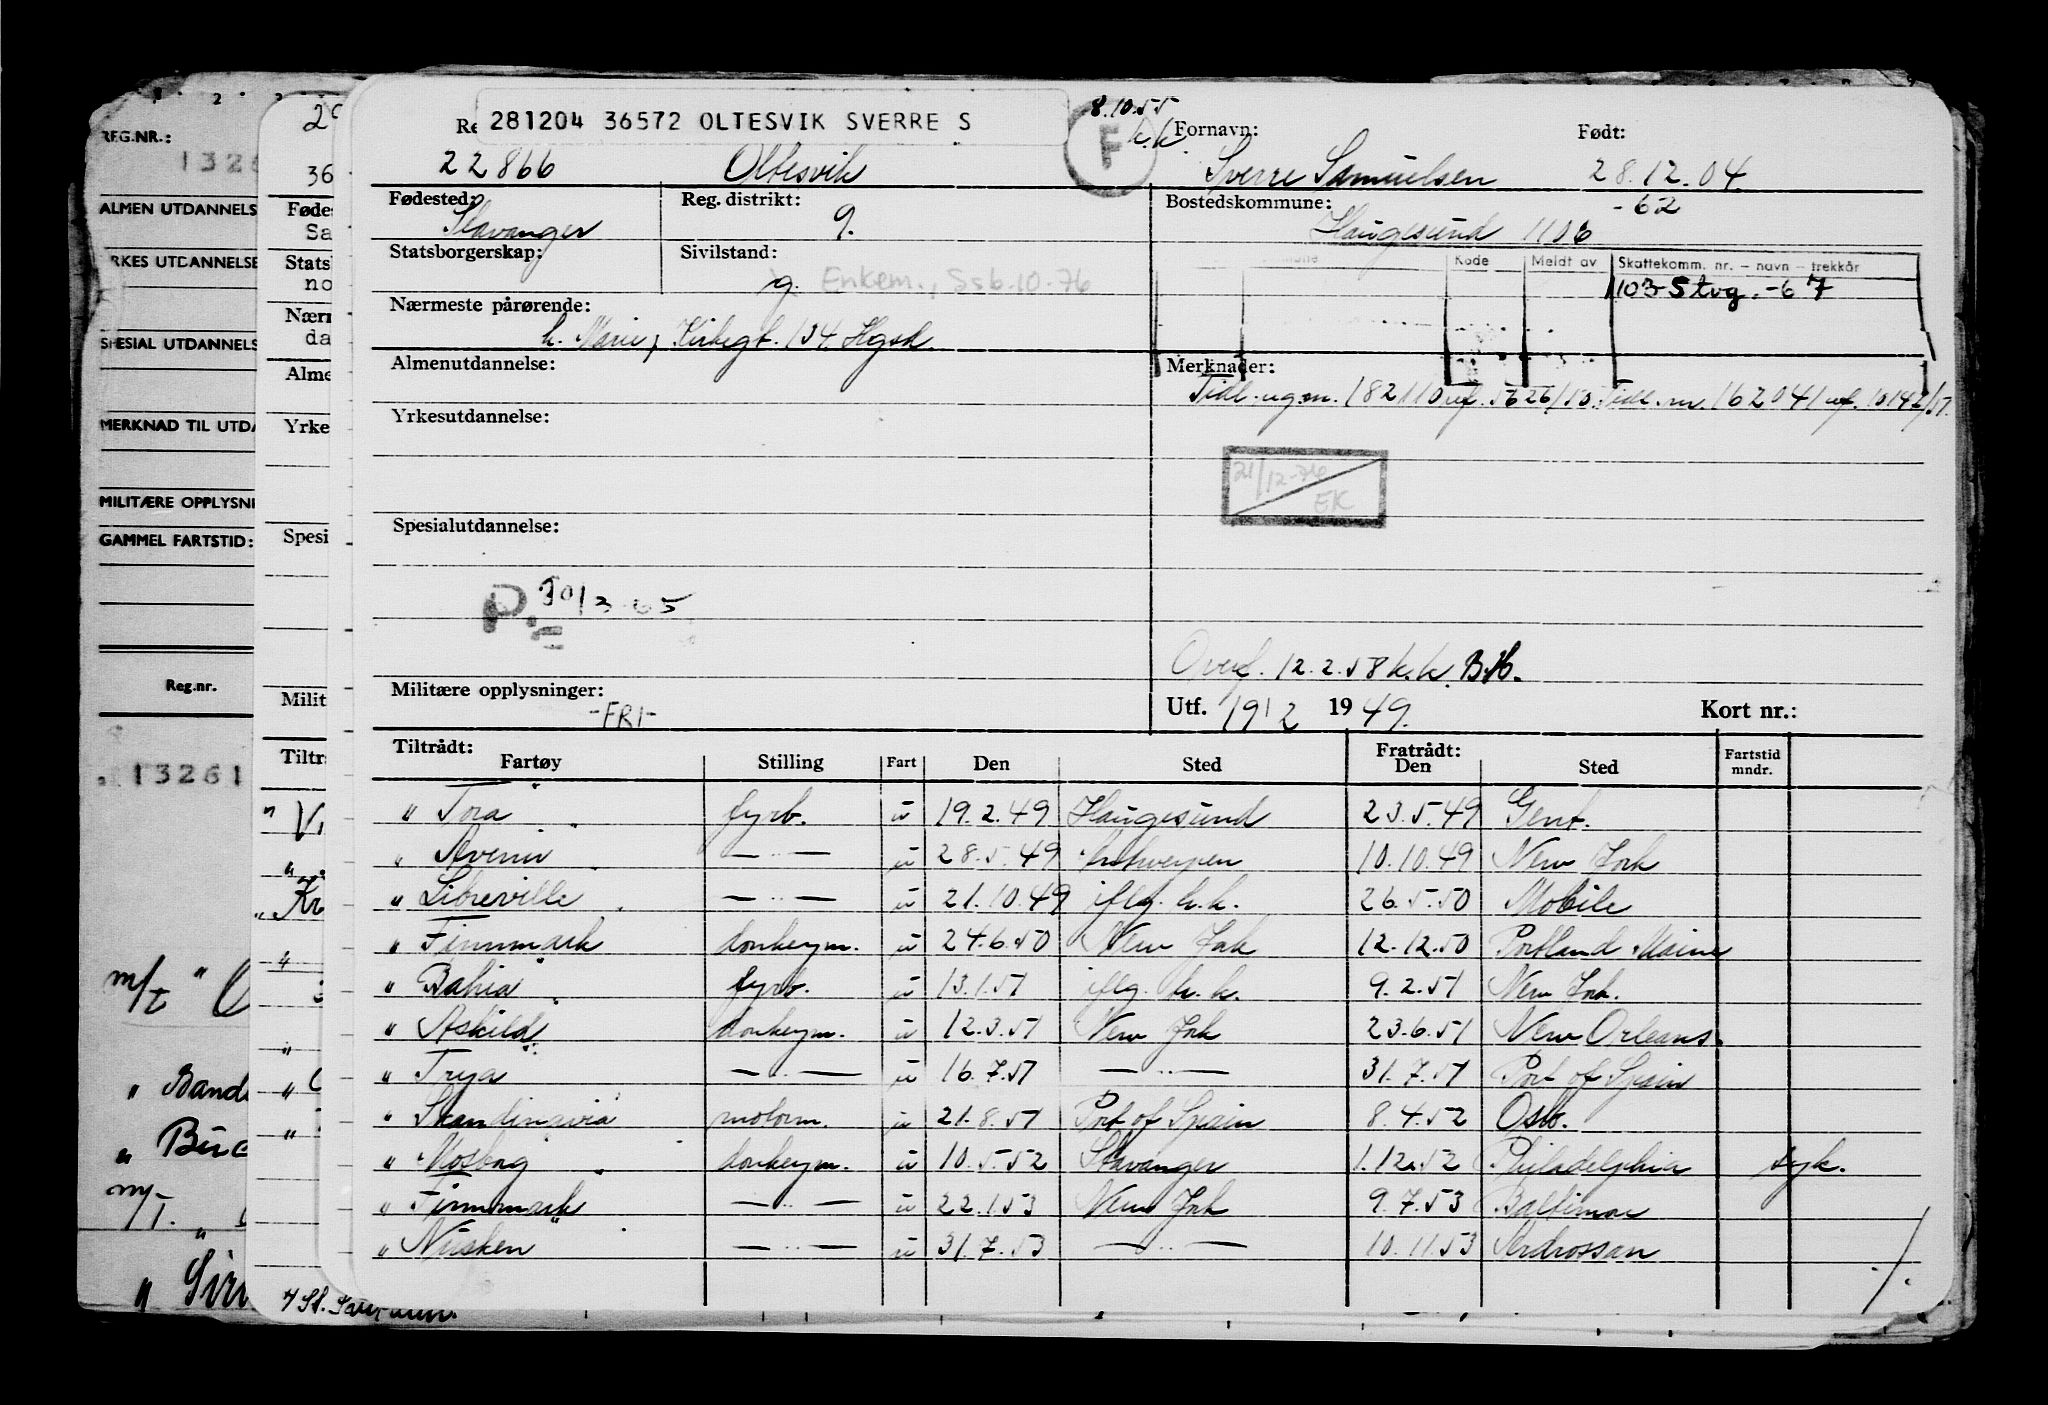 8.10.55
281204 36572 OLTESVIK SVERRE S
F
h.k.
Fornavn: Født:
22866 Oltesvik Sverre Samuelsen 28.12.04
Fødested: Reg. distrikt: Bostedskommune: -62
Stavanger 9. Haugesund 1106
Statsborgerskap: Sivilstand:
g. Enkem., Ssb.10-76
Kode Meldt av Skattekomm. nr. – navn – trekkår
1103 Stvg. -67
Nærmeste pårørende:
h. Marie, Kirkegt. 134 Hgsd.
Almenutdannelse:
Merknader:
Yrkesutdannelse:
21/12-76
EK
Spesialutdannelse:
P. 30/3-65
Overf. 12.2.58 h.k. B.H.
Militære opplysninger:
-FRI-
Utf. 19/2 1949. Kort nr.:
Tiltrådt: Fratrådt:
Fartøy Stilling Fart Den Sted Den Sted Fartstid mndr.
" Tora" fyrb. u 19.2.49 Haugesund 23.5.49 Gent.
" Avenir " — " — u 28.5.49 Antwerpen 10.10.49 New York
" Libreville " — " — u 21.10.49 iflg. h.k. 26.5.50 Mobile
" Finnmark donkeym. u 24.6.50 New York 12.12.50 Portland Maine
" Bahia" fyrb. u 13.1.51 iflg. h.k. 9.2.51 New York.
" Askild" donkeym. u 12.3.51 New York 23.6.51 New Orleans.
" Trya — " — u 16.7.51 — " — 31.7.51 Port of Spain
" Skandinavia motorm. u 21.8.51 Port of Spain 8.4.52 Oslo.
" Mosborg " donkeym. u 10.5.52 Stavanger 1.12.52 Philadelphia syk.
" Finnmark — " — u 22.1.53 New York 9.7.53 Baltimore
" Nusken" — " — u 31.7.53 — " — 10.11.53 Ardrossan
REG.NR.:
ALMEN UTDANNELS
RKES UTDANNELSE
SPESIAL UTDANNELS
MERKNAD TIL UTDA
MILITÆRE OPPLYSNI
GAMMEL FARTSTID:
Reg.nr.
13261
m/t "
" Band
" Bue
m/T. "
36
Føde
Sa
Stats
no
Nærn
da
Alme
Yrke
Spesi
Milit
Tiltr